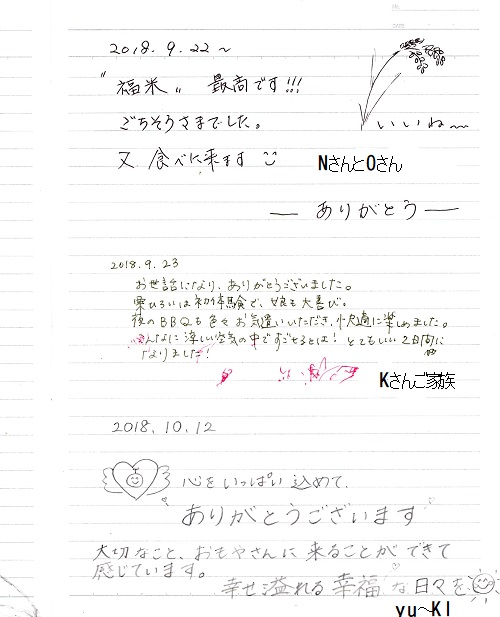 2018.9.22〜
"福米" 最高です!!!
ごちそうさまでした。
いいね〜
又 食べに来ます
NさんとOさん
― ありがとう ―
2018.9.23
お世話になり、ありがとうございました。
栗ひろいは初体験で、娘も大喜び。
夜のBBQも色々お気遣いいただき、快適に楽しめました。
こんなに涼しい空気の中ですごせるとは! とてもいい2日間に
なりました!
Kさんご家族
2018.10.12
心をいっぱい込めて、
ありがとうございます
大切なこと、おもやさんに来ることができて
感じています。
幸せ溢れる幸福な日々を
yu~KI